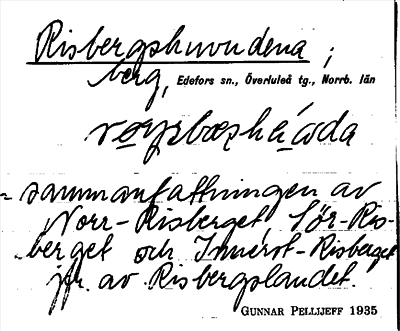 Risbergshuvudena ;
berg, Edefors sn., Överluleå tg., Norrb. län
= sammanfattningen av
Norr-Risberget, Sör-Ris-
berget och Innerst-Risberget
jfr. av Risbergslandet.
GUNNAR PELLIJEFF 1935